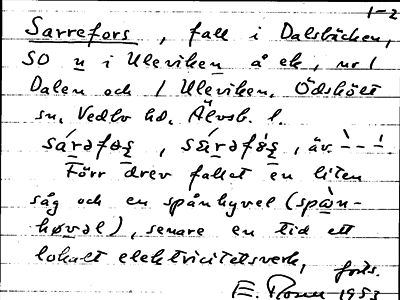 1-2
Sarrefors, fall i Dalsbäcken,
SO u i Uleviken å ek, nr 1
Dalen och 1 Uleviken, Ödskölt
sn, Vedbo hd, Älvsb. l.
Förr drev fallet en liten
såg och en spånhyvel (spån-
høvəl), senare en tid ett
lokalt elektricitetsverk,
forts.
E. 1953